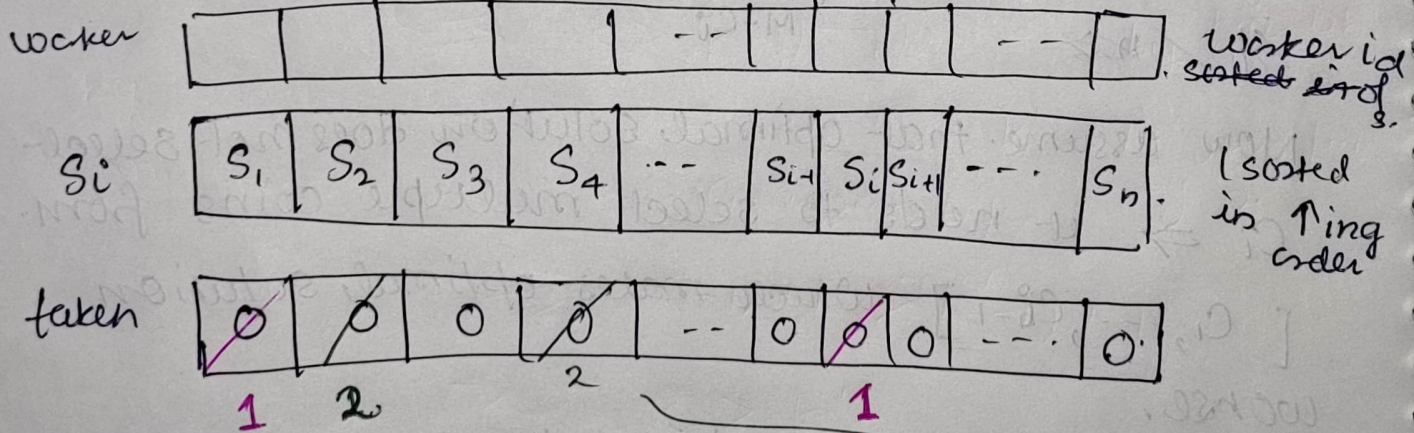 worker -- -- worker id
sorted in of
s.
Si S1 S2 S3 S4 --- Si-1 Si Si+1 ---- Sn (sorted
in ↑ing
order
taken 0 0 0 0 -- 0 0 0 ---- 0
1 2 2 1